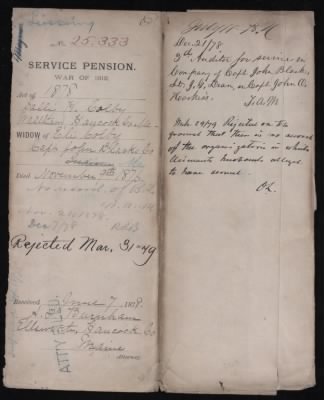 No. 25,333
SERVICE PENSION.
WAR OF 1812.
Act of 1878
Sally H. Colby
Hancock Co. Me
WIDOW of Eli Colby
Capt. John Black's Co
Me
Died November 1872
No record of B.L.
Nov. 21 1878.
Dec 7/78
Rejected Mar. 31-79
Received June 7, 1878.
A. F. Burnham
Ellsworth, Hancock Co
Maine
Attorney.
ATTY
Dec. 21/78
3rd Auditor for service in
Company of Capt. John Black,
Lt. J. G. Dean, or Capt John A.
Mch 29/79 Rejected on the
ground that there is no record
of the organization in which
claimants husband alleged
to have served.